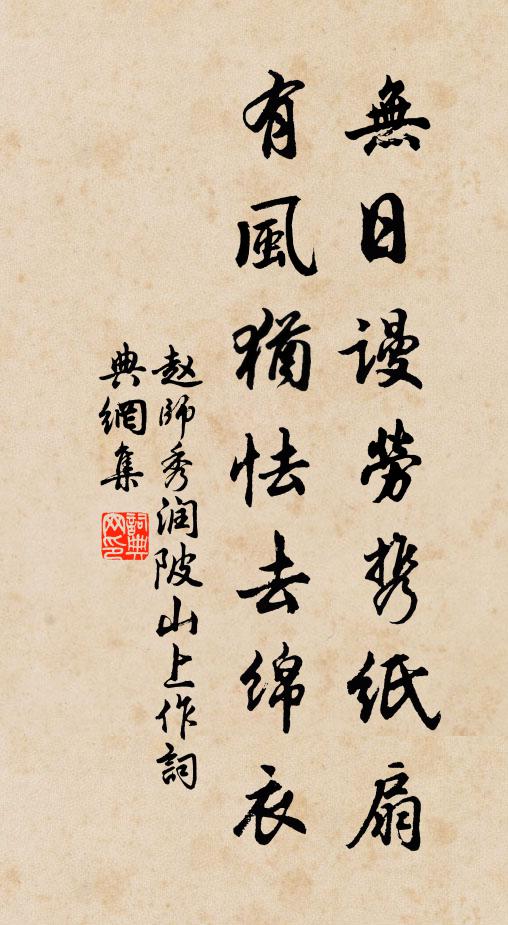 無日謾勞携纸扇
有風猶怯去綿衣
赵師秀润陂山上作詞
典網集
詞典
网印